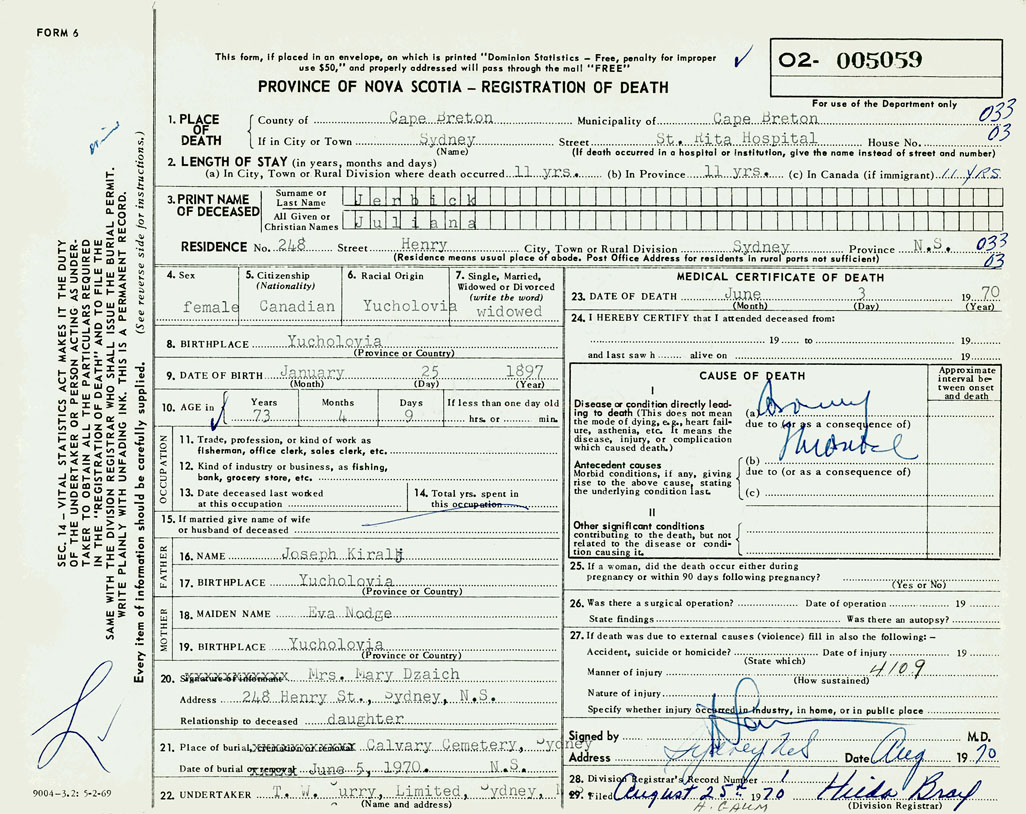 FORM 6
This form, if placed in an envelope, on which is printed "Dominion Statistics – Free, penalty for improper
use $50," and properly addressed will pass through the mail "FREE"
PROVINCE OF NOVA SCOTIA – REGISTRATION OF DEATH
02- 005059
For use of the Department only
033
03
1. PLACE OF DEATH
County of Cape Breton Municipality of Cape Breton
If in City or Town Sydney Street St. Rita Hospital House No.
(Name) (If death occurred in a hospital or institution, give the name instead of street and number)
2. LENGTH OF STAY (in years, months and days)
(a) In City, Town or Rural Division where death occurred 11 yrs. (b) In Province 11 yrs. (c) In Canada (if immigrant) 11 YRS.
3. PRINT NAME OF DECEASED
Surname or Last Name Jerbick
All Given or Christian Names Juliana
RESIDENCE No. 248 Street Henry City, Town or Rural Division Sydney Province N.S. 033
(Residence means usual place of abode. Post Office Address for residents in rural parts not sufficient) 03
4. Sex
female
5. Citizenship
(Nationality)
Canadian
6. Racial Origin
Yucholovia
7. Single, Married,
Widowed or Divorced
(write the word)
widowed
8. BIRTHPLACE Yucholovia
(Province or Country)
9. DATE OF BIRTH January 25 1897
(Month) (Day) (Year)
10. AGE in Years Months Days If less than one day old
73 4 9 hrs. or min.
OCCUPATION
11. Trade, profession, or kind of work as
fisherman, office clerk, sales clerk, etc.
12. Kind of industry or business, as fishing,
bank, grocery store, etc.
13. Date deceased last worked
at this occupation
14. Total yrs. spent in
this occupation
15. If married give name of wife
or husband of deceased
FATHER
16. NAME Joseph Kiralj
17. BIRTHPLACE Yucholovia
(Province or Country)
MOTHER
18. MAIDEN NAME Eva Nodge
19. BIRTHPLACE Yucholovia
(Province or Country)
20. Signature of informant Mrs. Mary Dzaich
Address 248 Henry St., Sydney, N.S.
Relationship to deceased daughter
21. Place of burial, cremation or removal Calvary Cemetery, Sydney
Date of burial or removal June 5, 1970. N.S.
22. UNDERTAKER T. W. Curry, Limited, Sydney,
(Name and address)
MEDICAL CERTIFICATE OF DEATH
23. DATE OF DEATH June 3 1970
(Month) (Day) (Year)
24. I HEREBY CERTIFY that I attended deceased from:
19 to 19
and last saw h alive on 19
CAUSE OF DEATH
Approximate
interval be-
tween onset
and death
I
Disease or condition directly lead-
ing to death (This does not mean
the mode of dying, e.g., heart fail-
ure, asthenia, etc. It means the
disease, injury, or complication
which caused death.)
(a)
due to (or as a consequence of)
(b)
Antecedent causes
Morbid conditions, if any, giving
rise to the above cause, stating
the underlying condition last.
due to (or as a consequence of)
(c)
II
Other significant conditions
contributing to the death, but not
related to the disease or condi-
tion causing it.
25. If a woman, did the death occur either during
pregnancy or within 90 days following pregnancy?
(Yes or No)
26. Was there a surgical operation? Date of operation 19
State findings Was there an autopsy?
27. If death was due to external causes (violence) fill in also the following: –
Accident, suicide or homicide? Date of injury 19
(State which)
Manner of injury 4109
(How sustained)
Nature of injury
Specify whether injury occurred in industry, in home, or in public place
Signed by M.D.
Address Sydney NS Date Aug 1970
28. Division Registrar's Record Number 1
29. Filed August 25th 1970 Hilda Bray
(Division Registrar)
SEC. 14 – VITAL STATISTICS ACT MAKES IT THE DUTY
OF THE UNDERTAKER OR PERSON ACTING AS UNDER-
TAKER TO OBTAIN ALL THE PARTICULARS REQUIRED
IN THE "REGISTRATION OF DEATH" AND TO FILE THE
SAME WITH THE DIVISION REGISTRAR WHO SHALL ISSUE THE BURIAL PERMIT.
WRITE PLAINLY WITH UNFADING INK. THIS IS A PERMANENT RECORD.
Every item of information should be carefully supplied. (See reverse side for instructions.)
9004-3.2: 5-2-69